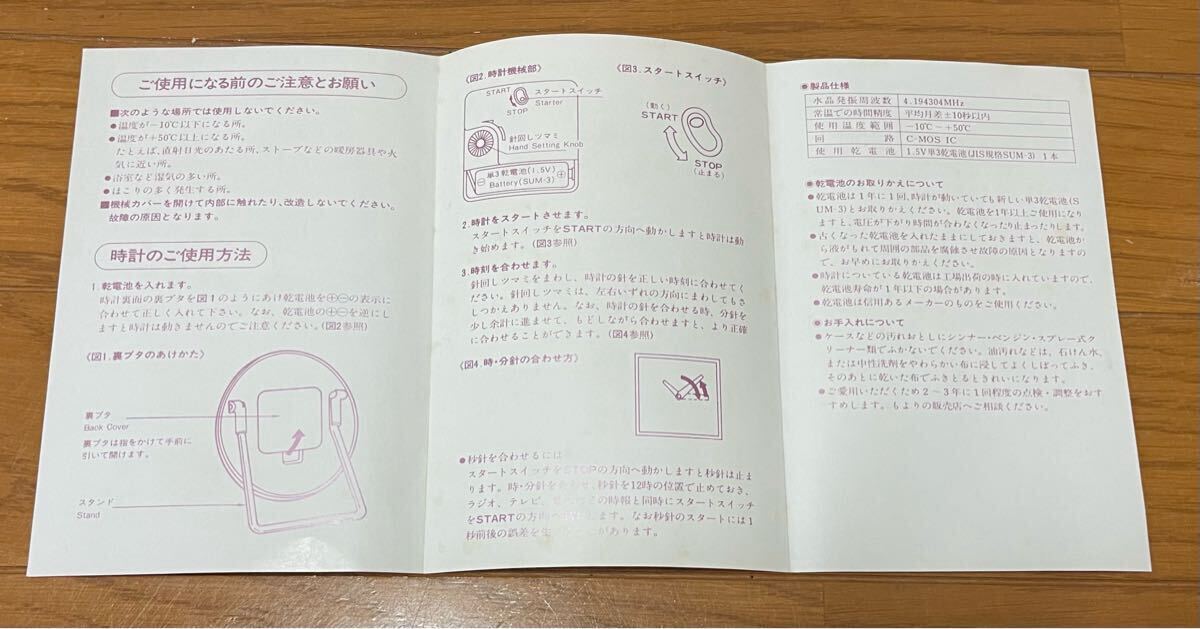 ご使用になる前のご注意とお願い
■次のような場所では使用しないでください。
●温度が−10℃以下になる所。
●温度が+50℃以上になる所。
たとえば、直射日光のあたる所、ストーブなどの暖房器具や火
気に近い所。
●浴室など湿気の多い所。
●ほこりの多く発生する所。
■機械カバーを開けて内部に触れたり、改造しないでください。
故障の原因となります。
時計のご使用方法
1.乾電池を入れます。
時計裏面の裏ブタを図1のようにあけ乾電池を⊕⊖の表示に
合わせて正しく入れて下さい。なお、乾電池の⊕⊖を逆にし
ますと時計は動きませんのでご注意ください。(図2参照)
《図1.裏ブタのあけかた》
裏ブタ
Back Cover
裏ブタは指をかけて手前に
引いて開けます。
スタンド
Stand
《図2.時計機械部》
START
STOP
スタートスイッチ
Starter
針回しツマミ
Hand Setting Knob
⊖ 単3乾電池(1.5V) ⊕
Battery(SUM-3)
《図3.スタートスイッチ》
(動く)
START
STOP
(止まる)
2.時計をスタートさせます。
スタートスイッチをSTARTの方向へ動かしますと時計は動
き始めます。(図3参照)
3.時刻を合わせます。
針回しツマミをまわし、時計の針を正しい時刻に合わせてく
ださい。針回しツマミは、左右いずれの方向にまわしてもさ
しつかえありません。なお、時計の針を合わせる時、分針を
少し余計に進ませて、もどしながら合わせますと、より正確
に合わせることができます。(図4参照)
《図4.時・分針の合わせ方》
●秒針を合わせるには
スタートスイッチをSTOPの方向へ動かしますと秒針は止ま
ります。時・分針を合わせ、秒針を12時の位置で止めておき、
ラジオ、テレビ、の時報と同時にスタートスイッチ
をSTARTの方向へ動かします。なお秒針のスタートには1
秒前後の誤差を生があります。
●製品仕様
水晶発振周波数 4.194304MHz
常温での時間精度 平均月差±10秒以内
使用温度範囲 −10℃〜+50℃
回路 C-MOS IC
使用乾電池 1.5V単3乾電池(JIS規格SUM-3) 1本
●乾電池のお取りかえについて
●乾電池は1年に1回、時計が動いていても新しい単3乾電池(S
UM-3)とお取りかえください。乾電池を1年以上ご使用になり
ますと、電圧が下がり時間が合わなくなったり止まったりします。
●古くなった乾電池を入れたままにしておきますと、乾電池か
ら液がもれて周囲の部品を腐蝕させ故障の原因となりますの
で、お早めにお取りかえください。
●時計についている乾電池は工場出荷の時に入れていますので、
乾電池寿命が1年以下の場合があります。
●乾電池は信用あるメーカーのものをご使用ください。
●お手入れについて
●ケースなどの汚れおとしにシンナー・ベンジン・スプレー式ク
リーナー類でふかないでください。油汚れなどは、石けん水、
または中性洗剤をやわらかい布に浸してよくしぼってふき、
そのあとに乾いた布でふきとるときれいになります。
●ご愛用いただくため2〜3年に1回程度の点検・調整をおす
すめします。もよりの販売店へご相談ください。